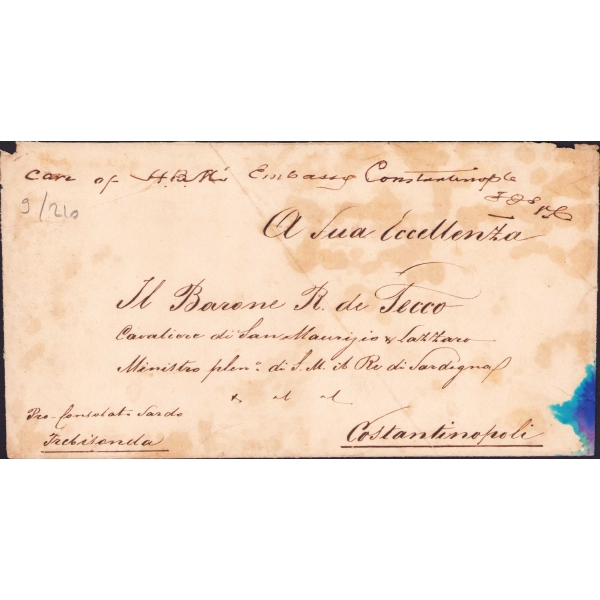 Care of H.B.M's Embassy Constantinople
9/210
A Sua Eccellenza
Il Barone R. de Tecco
Cavaliere di San Maurizio & Lazzaro
Ministro plen.o di S. M. il Re di Sardigna
& & &
Pro-Consolato Sardo
Trebisonda
Costantinopoli